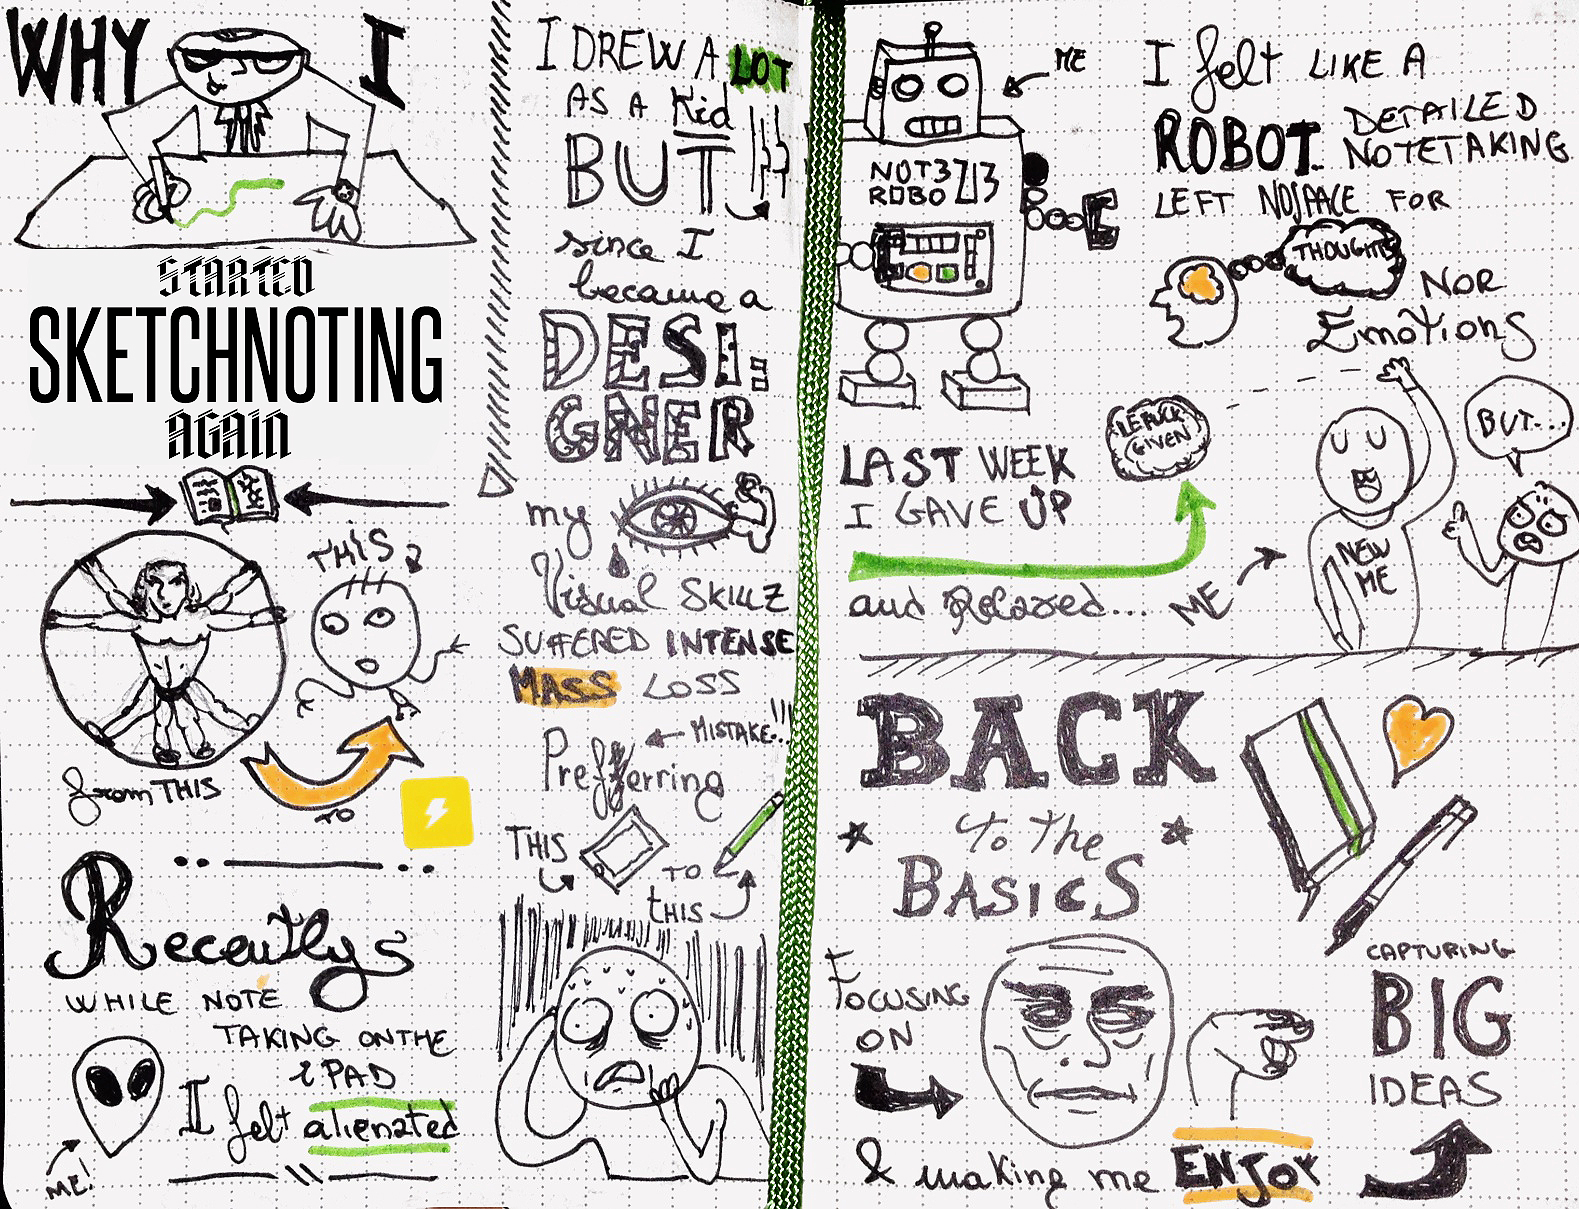 WHY I
STARTED
SKETCHNOTING
AGAIN
THIS
from THIS
TO
Recently
WHILE NOTE
TAKING ON THE
iPAD
I felt alienated
ME!
I DREW A LOT
AS A Kid
BUT
since I
became a
DESI:
GNER
my
Visual SKILLZ
SUFFERED INTENSE
MASS LOSS
MISTAKE!!!
Prefferring
THIS
TO
tHIS
ME
NOT3
ROBO
I felt LIKE A
ROBOT. DETAILED
NOTETAKING
LEFT NO SPACE FOR
THOUGHTS
NOR
Emotions
LAST WEEK
I GAVE UP
LE FUCK
GIVEN
and Relaxed...
ME
NEW
ME
BUT...
BACK
to the
BASICS
FOCUSING
ON
CAPTURING
BIG
IDEAS
& making me ENJOY